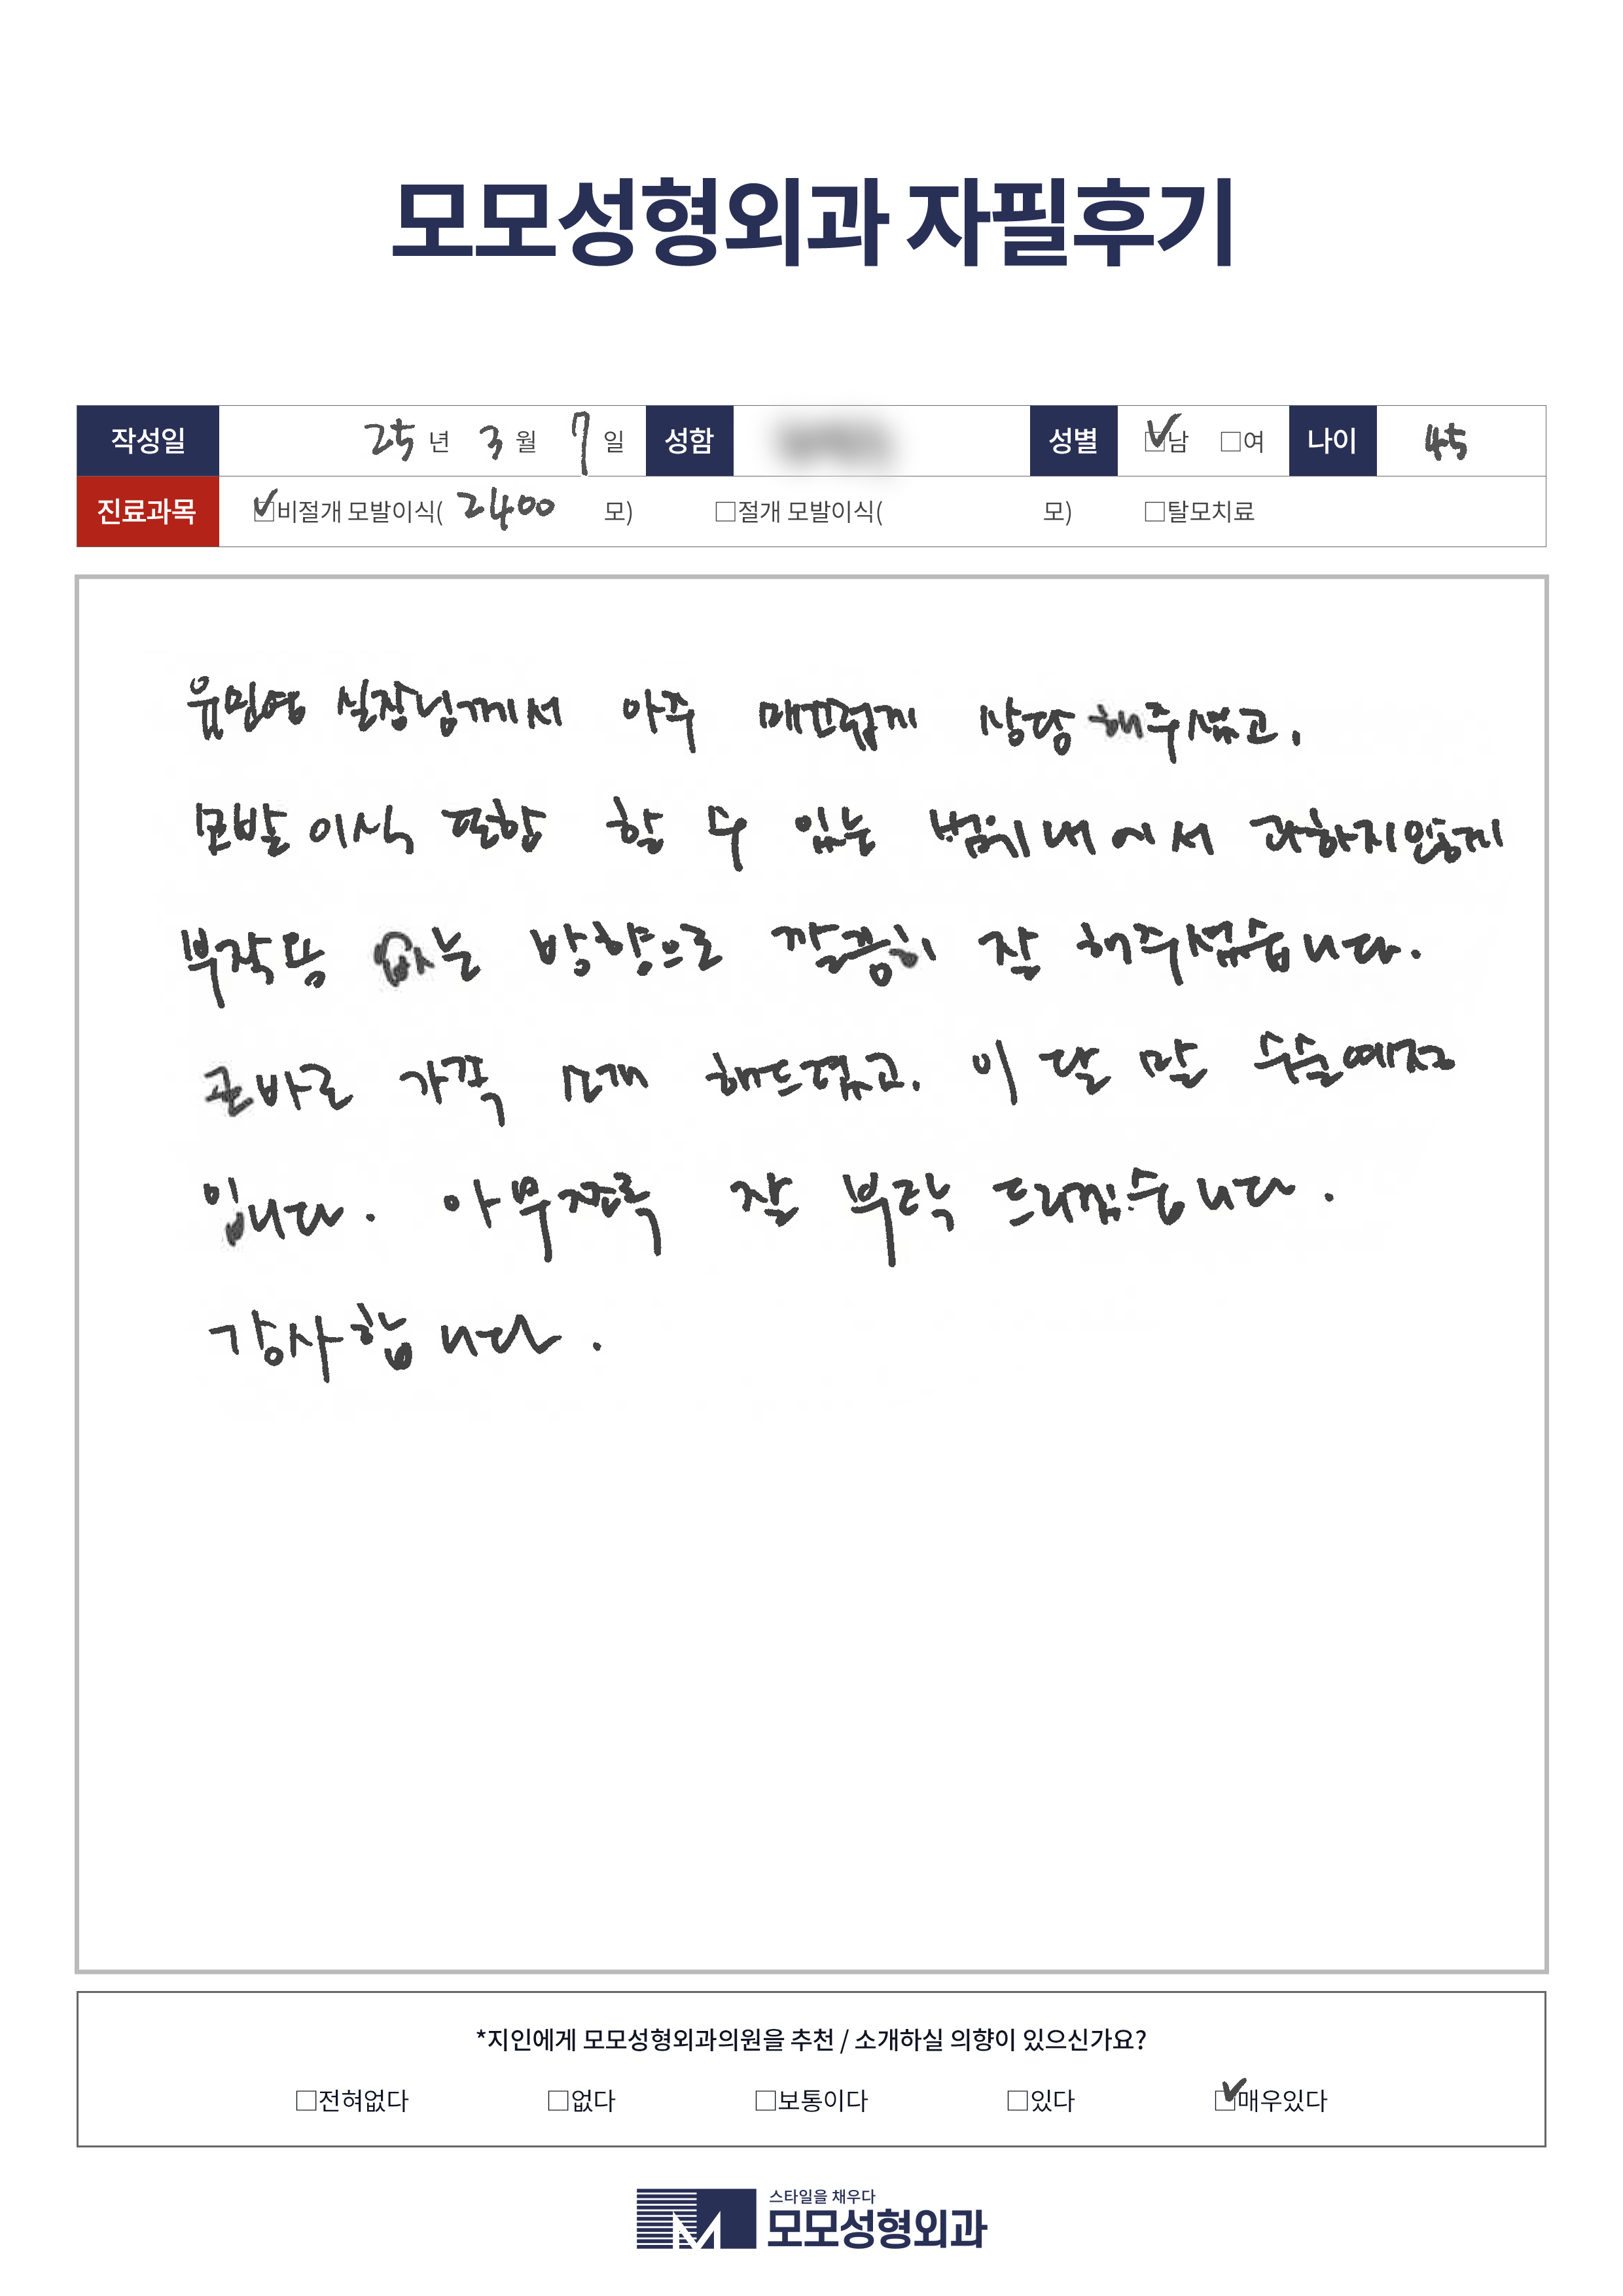 모모성형외과 자필후기
작성일 25년 3월 7일 성함 성별 ☑남 □여 나이 45
진료과목 ☑비절개 모발이식( 2400 모) □절개 모발이식( 모) □탈모치료
유민영 실장님께서 아주 매끄럽게 상담 해주셨고,
모발이식 편향 할 수 있는 범위내에서 과하지않게
부작용 없는 방향으로 깔끔히 잘 해주셨습니다.
곧바로 가족 소개 해드렸고, 이달 말 수술예정
입니다. 아무쪼록 잘 부탁 드리겠습니다.
감사합니다.
*지인에게 모모성형외과의원을 추천 / 소개하실 의향이 있으신가요?
□전혀없다 □없다 □보통이다 □있다 ☑매우있다
스타일을 채우다
모모성형외과